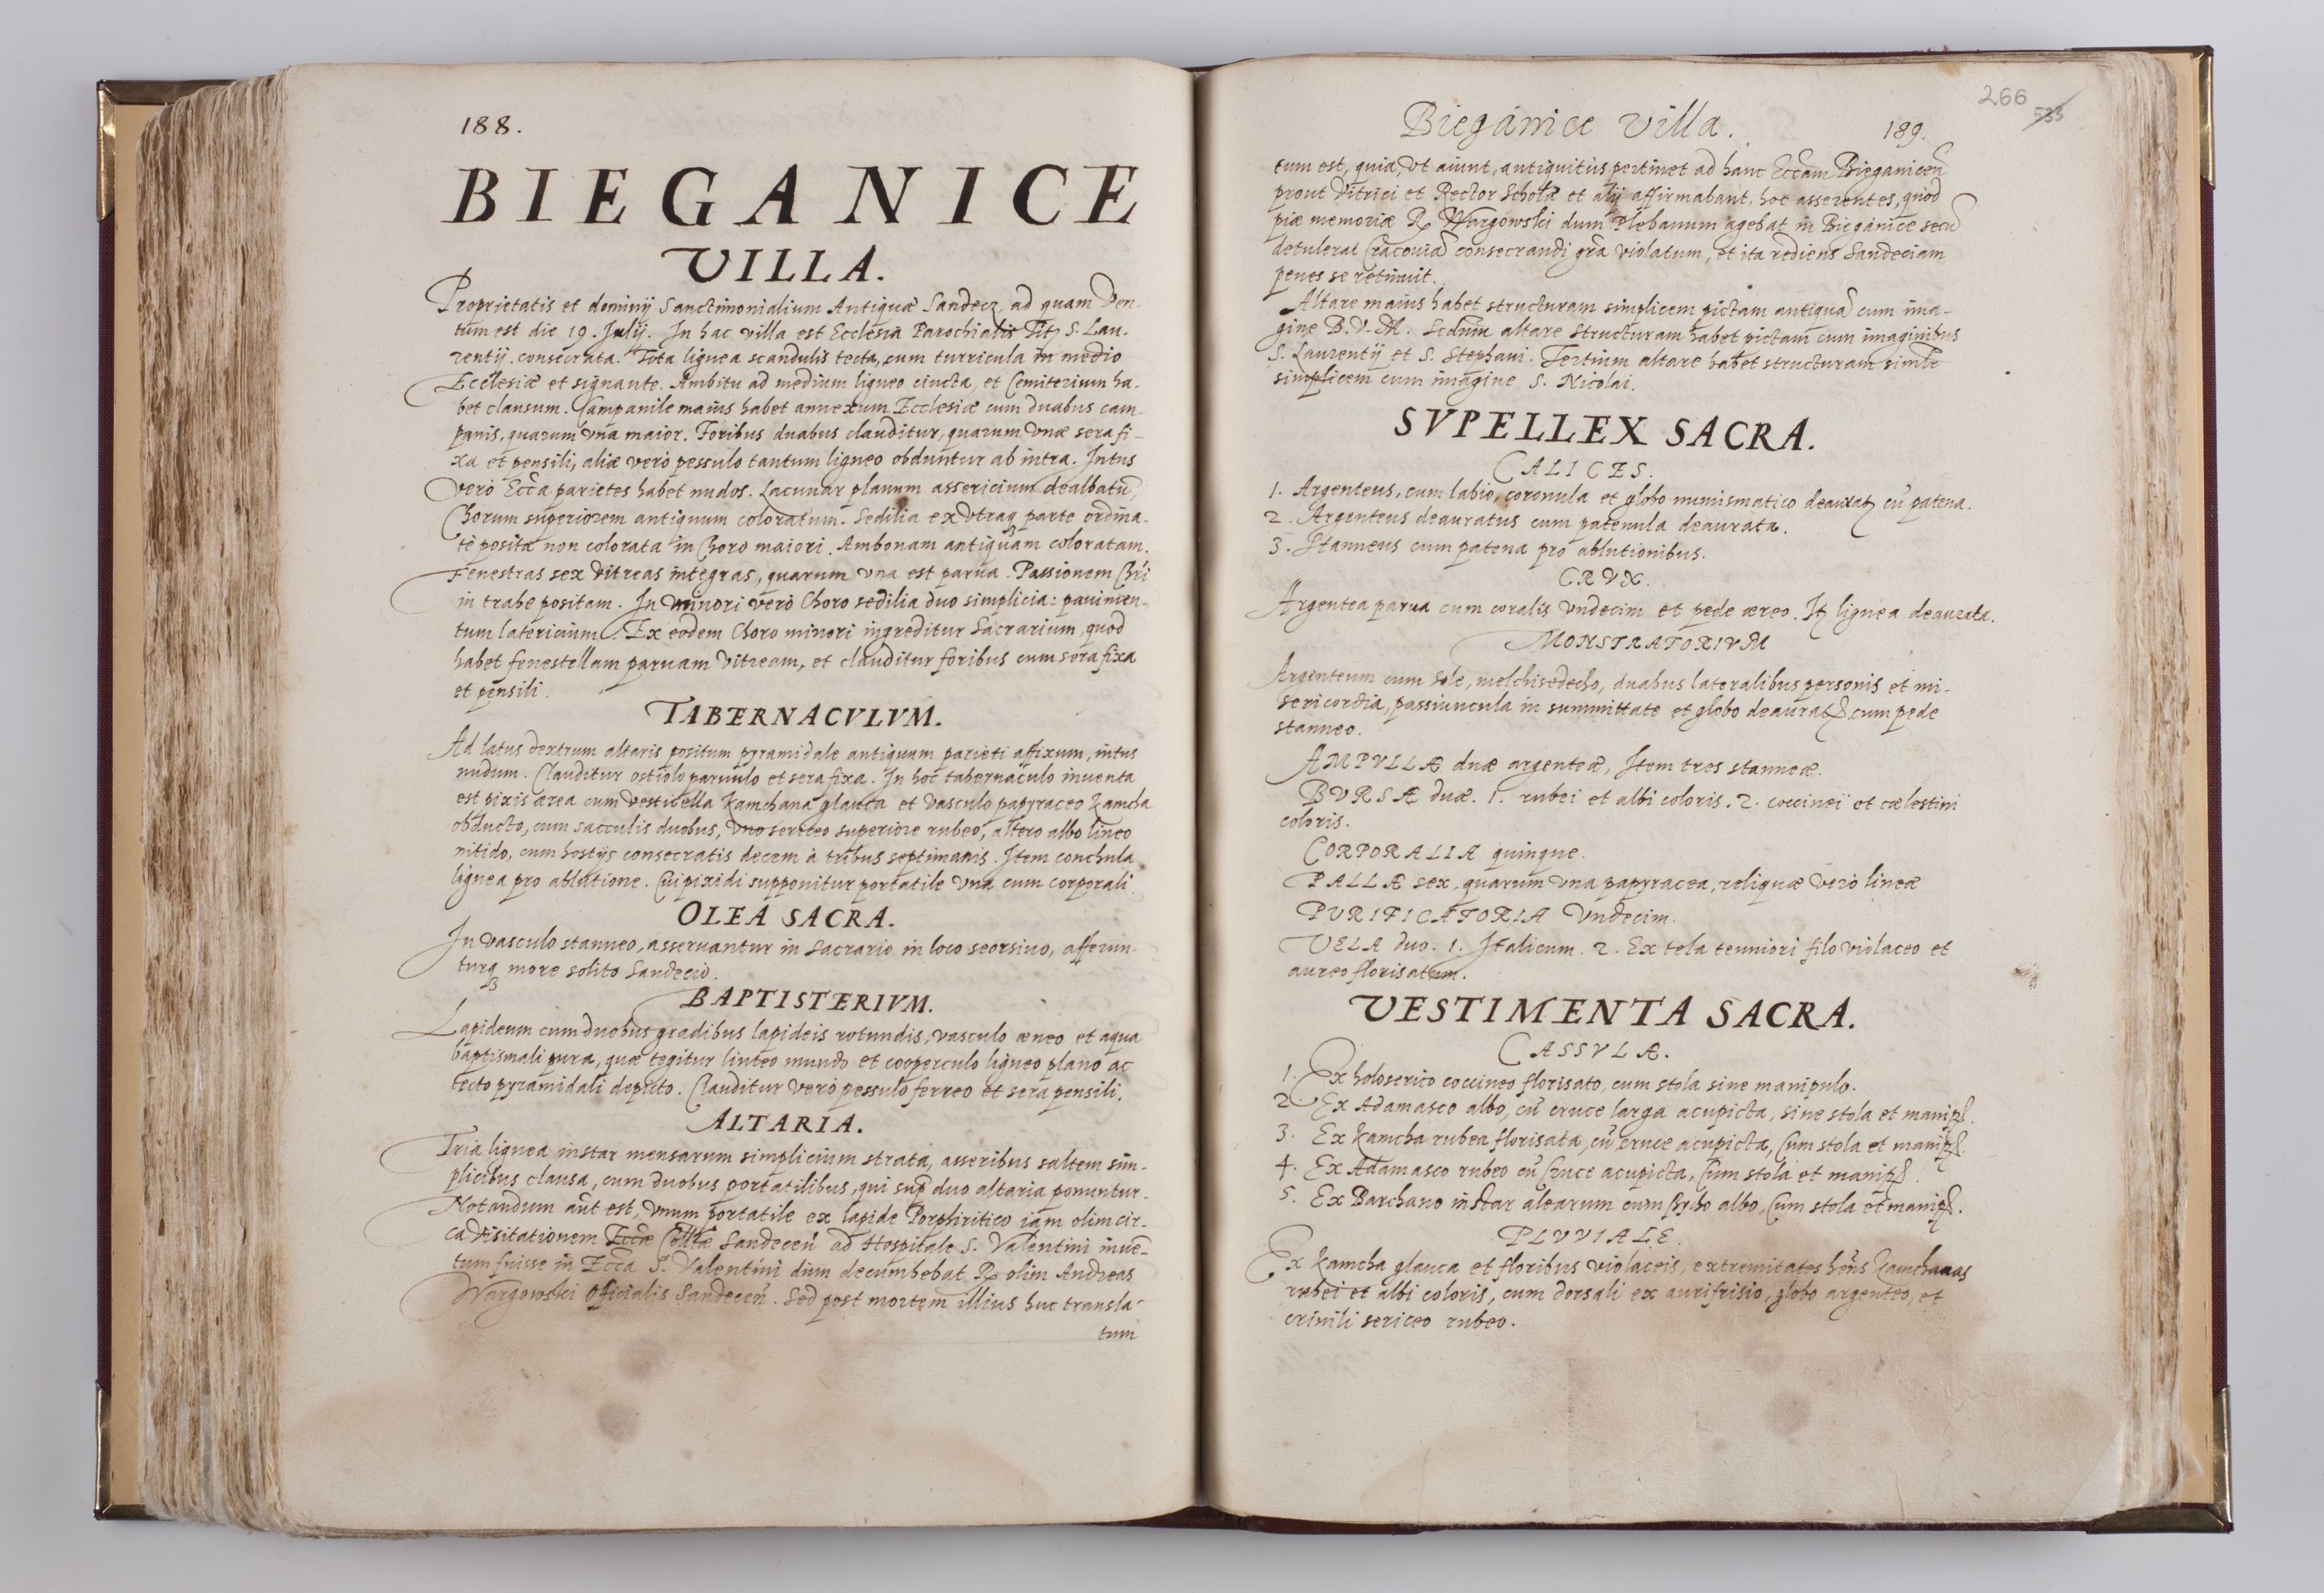 188.
BIEGANICE
VILLA.
Proprietatis et dominij Sanctimonialium Antiquæ Sandecz, ad quam Ven-
tum est die 19. Julij. In hac villa est Ecclesia Parochialis Titꝫ S. Lau-
rentij. consecrata. Tota lignea scandulis tecta, cum turricula in medio
Ecclesiæ et signante. Ambitu ad medium ligneo cincta, et Cemiterium ha-
bet clausum. Campanile maius habet annexum Ecclesiæ cum duabus cam-
panis, quarum vna maior. Foribus duabus clauditur, quarum vnæ sera fi-
xa et pensili, aliæ verò pessulo tantum ligneo obduntur ab intra. Intus
verò Ecc̃a parietes habet nudos. Lacunar planum assericium dealbatũ,
Chorum superiorem antiquum coloratum. Sedilia ex vtraq parte ordina-
tè posita non colorata in Choro maiori. Ambonam antiquam coloratam.
Fenestras sex vitreas integras, quarum vna est parua. Passionem Chr̃i
in trabe positam. In minori verò Choro sedilia duo simplicia: pauimen-
tum latericium. Ex eodem Choro minori ingreditur Sacrarium, quod
habet fenestellam paruam vitream, et clauditur foribus cum sera fixa
et pensili.
TABERNACVLVM.
Ad latus dextrum altaris positum pyramidale antiquum parieti affixum, intus
nudum. Clauditur ostiolo paruulo et sera fixa. In hoc tabernaculo inuenta
est pixis ærea cum vesticella Kamchana glauca et vasculo papyraceo Kamcha
obducto, cum sacculis duobus, vno sericeo superiore rubeo, altero albo lineo
nitido, cum hostijs consecratis decem à tribus septimanis. Item conchula
lignea pro ablutione. Cui pixidi supponitur portatile vna cum corporali.
OLEA SACRA.
In vasculo stanneo, asseruantur in Sacrario in loco seorsiuo, afferun-
turq more solito Sandecio.
BAPTISTERIVM.
Lapideum cum duobus gradibus lapideis rotundis, vasculo æneo et aqua
baptismali pura, quæ tegitur linteo mundo et cooperculo ligneo plano ac
tecto pyramidali depicto. Clauditur verò pessulo ferreo et sera pensili.
ALTARIA.
Tria lignea instar mensarum simplicium strata, asseribus saltem sim-
plicibus clausa, cum duobus portatilibus, qui sup̃ duo altaria ponuntur.
Notandum aũt est, vnum portatile ex lapide Porphiritico iam olim cir-
ca visitationem Ecc̃æ Coll̃tæ Sandeceñ ad Hospitale S. Valentini inuẽ-
tum fuisse in Ecc̃a S. Valentini dum decumbebat R̃ olim Andreas
Wargowski Officialis Sandeceñ. Sed post mortem illius huc transla-
tum
266
535
Biegánice villa.
189.
tum est, quia, vt aiunt, antiquitùs pertinet ad hanc Ecc̃am Bieganiceñ
prout Vitrici et Rector Scholæ et alij affirmabant, hoc asserentes, quod
piæ memoriæ R̃ Wargowski dum Plebanum agebat in Biegánice secũ
detulerat Cracouiã consecrandi gr̃a violatum, et ita rediens Sandeciam
penes se retinuit.
Altare maius habet structuram simplicem pictam antiquã cum ima-
gine B.V.M. Sc̃dum altare structuram habet pictam cum imaginibus
S. Laurentij et S. Stephani. Tertium altare habet structuram simile
simplicem cum imagine S. Nicolai.
SVPELLEX SACRA.
CALICES.
1. Argenteus, cum labio, coronula et globo numismatico deauratꝫ cũ patena.
2. Argenteus deauratus cum patenula deaurata.
3. Stanneus cum patena pro ablutionibus.
CRVX.
Argentea parua cum coralis vndecim et pede æreo. Itꝫ lignea deaurata.
MONSTRATORIVM
Argenteum cum sole, melchisedecho, duabus lateralibus personis et mi-
sericordia, passiuncula in summittate et globo deauratꝫ cum pede
stanneo.
AMPVLLÆ duæ argenteæ, Item tres stanneæ.
BVRSÆ duæ. 1. rubei et albi coloris. 2. coccinei et cælestini
coloris.
CORPORALIA quinque.
PALLÆ sex, quarum vna papyracea, reliquæ verò lineæ
PVRIFICATORIA vndecim.
VELA duo. 1. Italicum. 2. Ex tela tenuiori filo violaceo et
aureo florisatum.
VESTIMENTA SACRA.
CASSVLÆ.
1. Ex holoserico coccineo florisato, cum stola sine manipulo.
2. Ex Adamasco albo, cũ cruce larga acupicta, sine stola et manipꝫ.
3. Ex Kamcha rubea florisata, cũ cruce acupicta, Cum stola et manipꝫ.
4. Ex Adamasco rubeo cũ Cruce acupicta, Cum stola et manipꝫ.
5. Ex Barchano instar alearum cum albo, Cum stola et manipꝫ.
PLVVIALE.
Ex Kamcha glauca et floribus violaceis, extremitates hẽns Kamchanas
rubei et albi coloris, cum dorsali ex aurifrisio, globo argenteo, et
crinili sericeo rubeo.